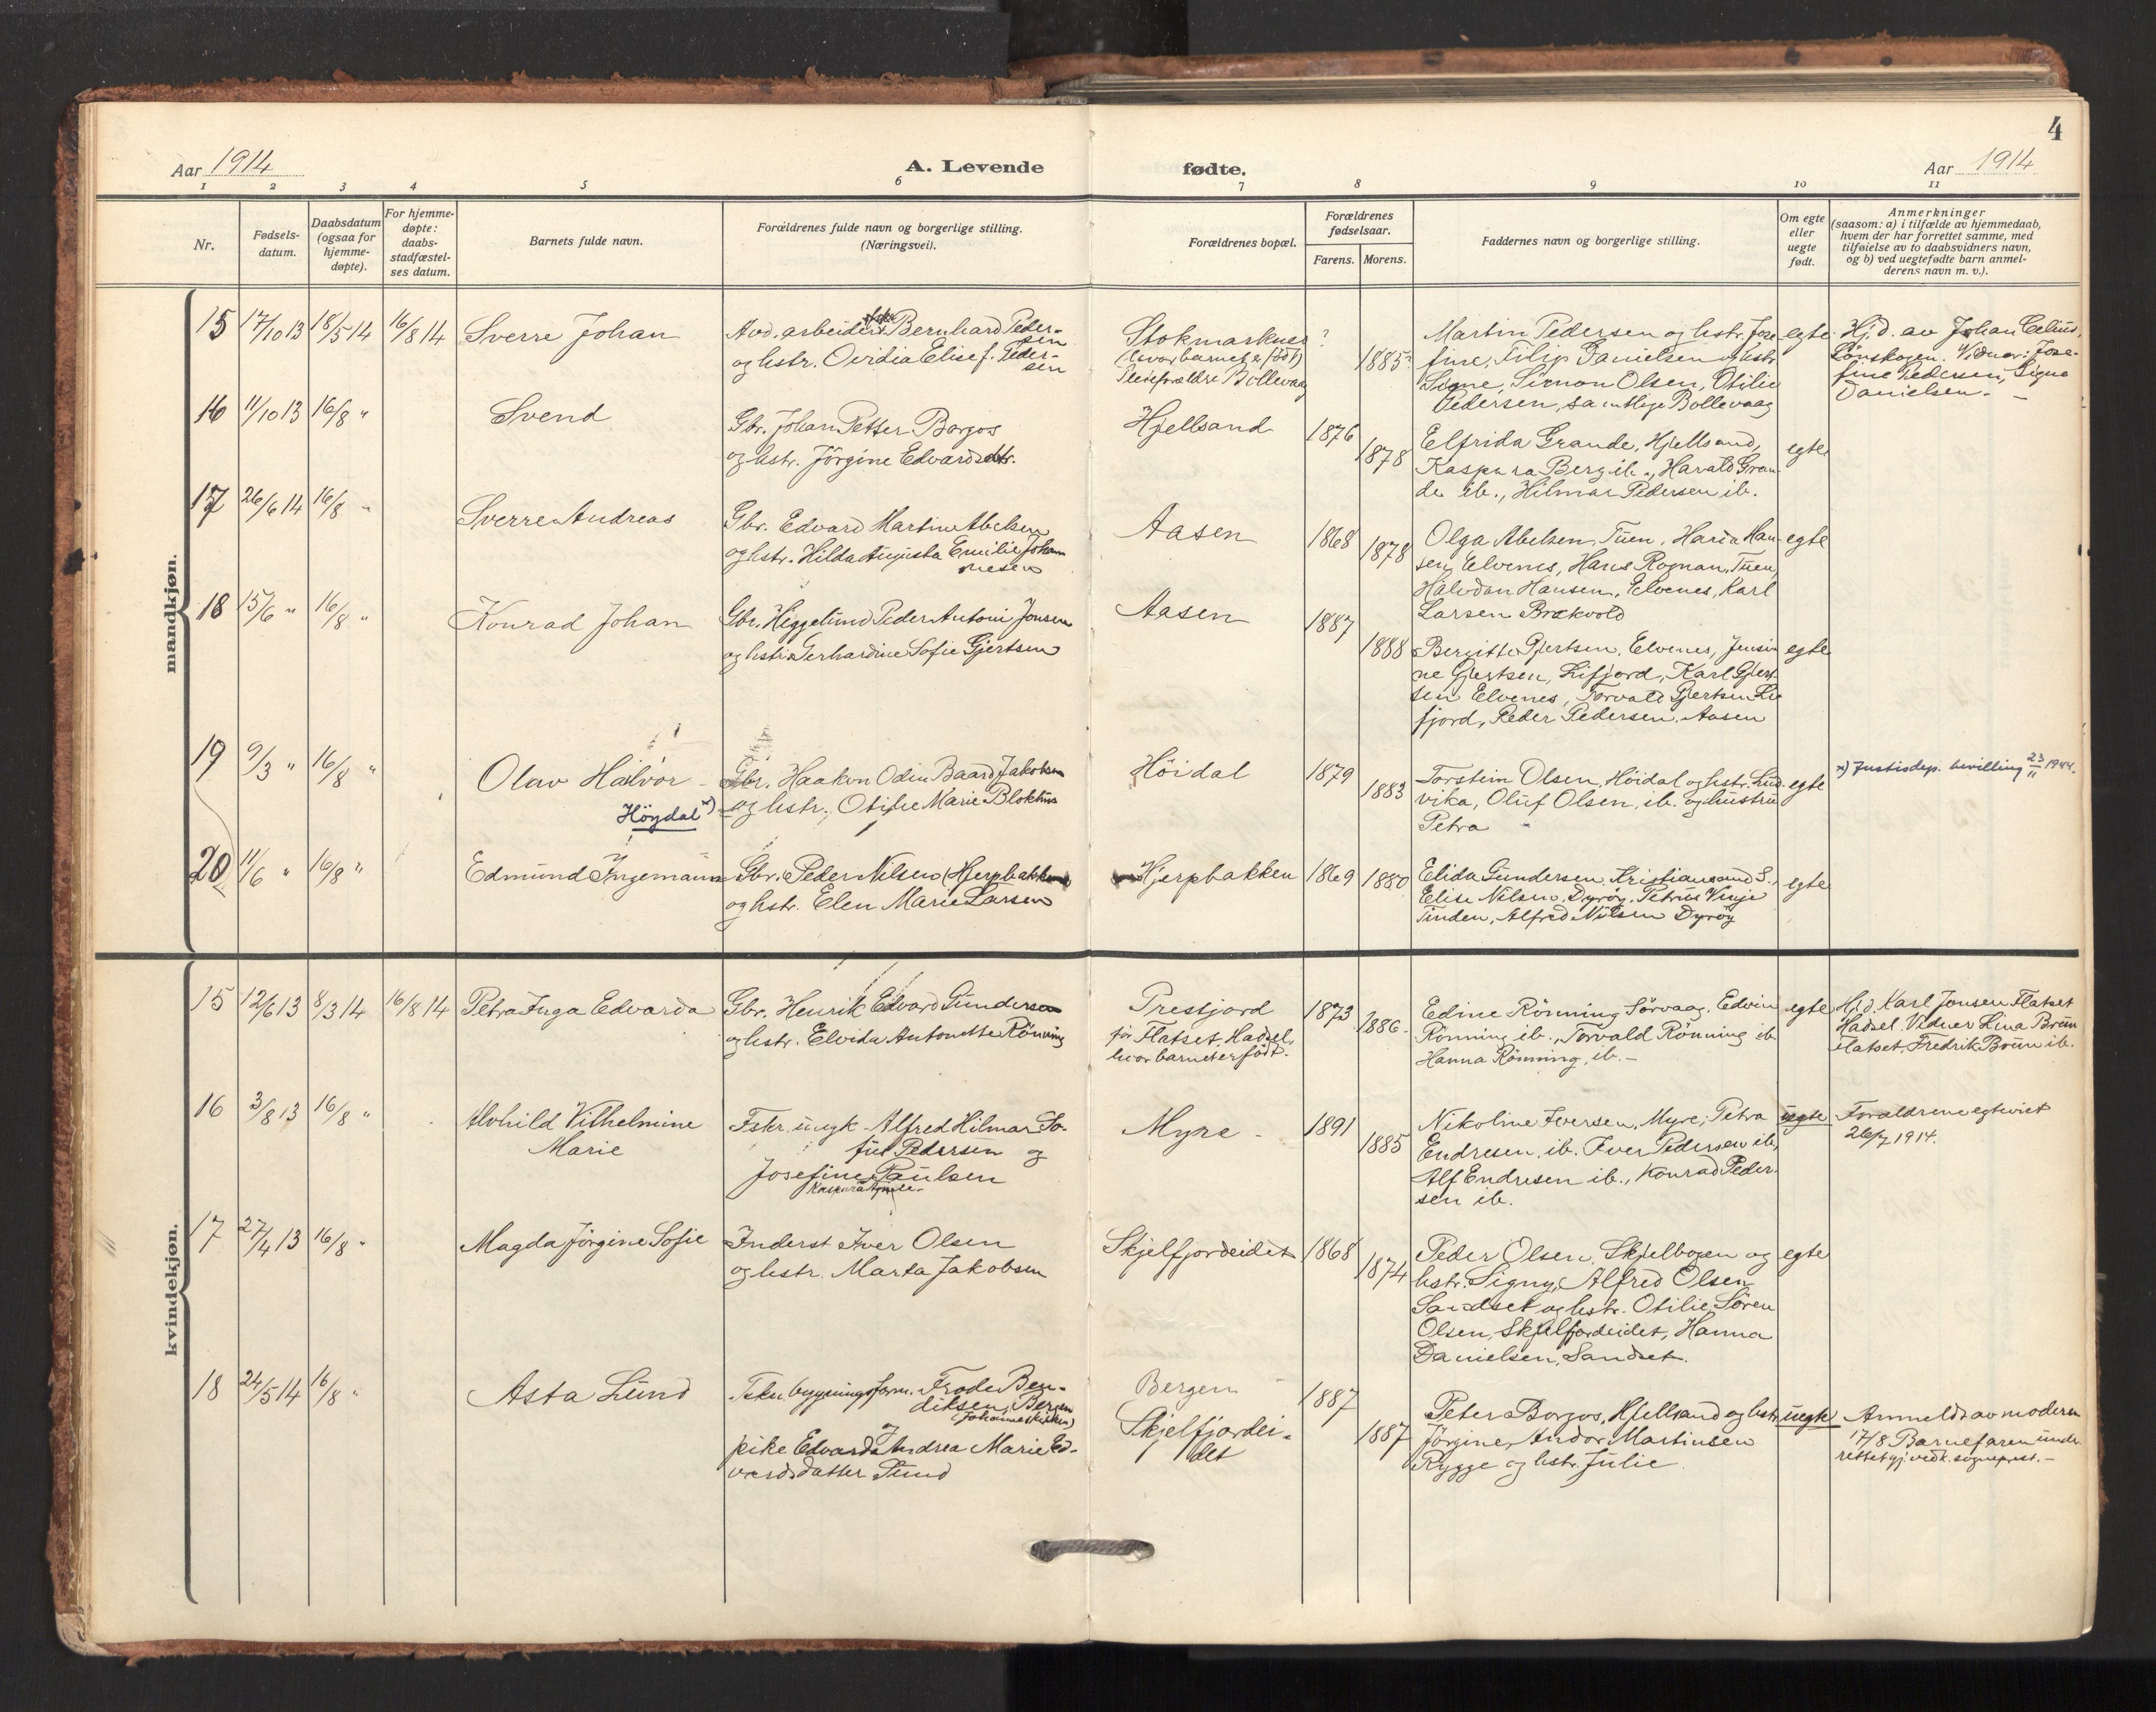 4
Aar 1914
A. Levende
fødte.
Aar 1914
1 2 3 4 5 6 7 8 9 10 11
Nr.
Fødsels-
datum.
Daabsdatum
(ogsaa for
hjemme-
døpte).
For hjemme-
døpte:
daabs-
stadfæstel-
ses datum.
Barnets fulde navn.
Forældrenes fulde navn og borgerlige stilling.
(Næringsvei).
Forældrenes bopæl.
Forældrenes
fødselsaar.
Farens. Morens.
Faddernes navn og borgerlige stilling.
Om egte
eller
uegte
født.
Anmerkninger
(saasom: a) i tilfælde av hjemmedaab,
hvem der har forrettet samme, med
tilføielse av to daabsvidners navn,
og b) ved uegtefødte barn anmel-
derens navn m. v.).
mandkjøn.
15 17/10 13 18/5 14 16/8 14 Sverre Johan
Avd. arbeider Bernhard Peder-
sen
og hstr. Ovidia Elise f. Peder-
sen
Stokmarknes
(hvor barnet er født)
Pleieforældre Bollevaag
? 1885?
Martin Pedersen og hstr. Jose
fine, Filip Danielsen og hstr
Signe, Simon Olsen, Otilie
Pedersen, samtlige Bollevaag
egte
Hjd. av Johan Celius,
Lønskogen. Vidner: Jose-
fine Pedersen, Signe
Danielsen. -
16 11/10 13 16/8 " Svend
Gbr. Johan Petter Borgos
og hstr. Jörgine Edvardsdtr.
Hjellsand 1876 1878
Elfrida Grande, Hjellsand,
Kaspara Berg ib., Harald Gran
de ib., Hilmar Pedersen ib.
egte
17 26/6 14 16/8 " Sverre Andreas
Gbr. Edvard Martin Abelsen
og hstr. Hilda Augusta Emilie Johan
nesen
Aasen 1868 1878
Olga Abelsen, Tuen, Hansa Han
sen Elvenes, Hans Rognan, Tuen,
Halvdan Hansen, Elvenes, Karl
Larsen Brækvold
egte
18 15/6 " 16/8 " Konrad Johan
Gbr. Heggelund Peder Antoni Jonsen
og hstr Gerhardine Sofie Gjertsen
Aasen 1887 1888
Bergitte Gjertsen, Elvenes, Jensi
ne Gjertsen, Lifjord, Karl Gjert
sen Elvenes, Torvald Gjertsen Li
fjord, Peder Pedersen, Aasen
egte
19 9/3 " 16/8 " Olav Halvor
Höydal x)
Gbr. Haakon Odin Baard Jakobsen
og hstr. Otilie Marie Bloktus
Höidal 1879 1883
Torstein Olsen, Höidal og hstr. Lud
vika, Oluf Olsen, ib. og hustru
Petra
egte
x) Justisdep. bevilling 23/11 1944.
20 11/6 " 16/8 " Edmund Ingemann
Gbr. Peder Nilsen (Hjerpbakken)
og hstr. Elen Marie Larsen
Hjerpbakken 1869 1880
Elida Gundersen, Kristiansund S.,
Elise Nilsen, Dyröy, Petrus Vinje
Tinden, Alfred Nilsen Dyröy
egte
kvindekjøn.
15 12/6 13 8/3 14 16/8 14 Petra Inga Edvarda
Gbr. Henrik Edvard Gundersen
og hstr. Elvida Antonette Rönning
Prestfjord
för Flatset, Hadsel,
hvor barnet er født.
1873 1886
Edine Rönning Sörvaag, Edvin
Rönning ib., Torvald Rönning ib
Hanna Rönning, ib. -
egte
Hjd. Karl Jonsen Flatset
Hadsel. Vidner Lina Bruun
Flatset, Fredrik Bruun ib.
16 3/8 13 16/8 " Alvhild Vilhelmine
Marie
Fskr. ungk. Alfred Hilmar So-
fus Pedersen og
Josefine Paulsen
Kaspara
Myre 1891 1885
Nikoline Iversen, Myre, Petra
Endresen, ib. Iver Pedersen ib,
Alf Endresen ib., Konrad Peder-
sen ib.
uegte
Forældrene egteviet
26/7 1914.
17 27/4 13 16/8 " Magda Jörgine Sofie
Inderst Iver Olsen
og hstr. Marta Jakobsen
Skjelfjordeidet 1868 1874
Peder Olsen, Skjelbogen og
hstr. Signy, Alfred Olsen
Sandset og hstr. Otilie, Sören
Olsen, Skjelfjordeidet, Hanna
Danielsen, Sandset.
egte
18 24/5 14 16/8 " Asta Lund
bygningsform. Frode Ben-
diksen, Bergen
(Johanneskirken)
og
pike Edvarda Andrea Marie Ed-
vardsdatter Lund
Bergen
Skjelfjordei-
det
1887 1887
Peter Borgos, Hjellsand og hstr
Jörgine, Andor Martinsen
Rygge og hstr. Julie.
uegte
Anmeldt av moderen
17/8 Barnefaren under
rettet gj. vedk. sogneprest. -